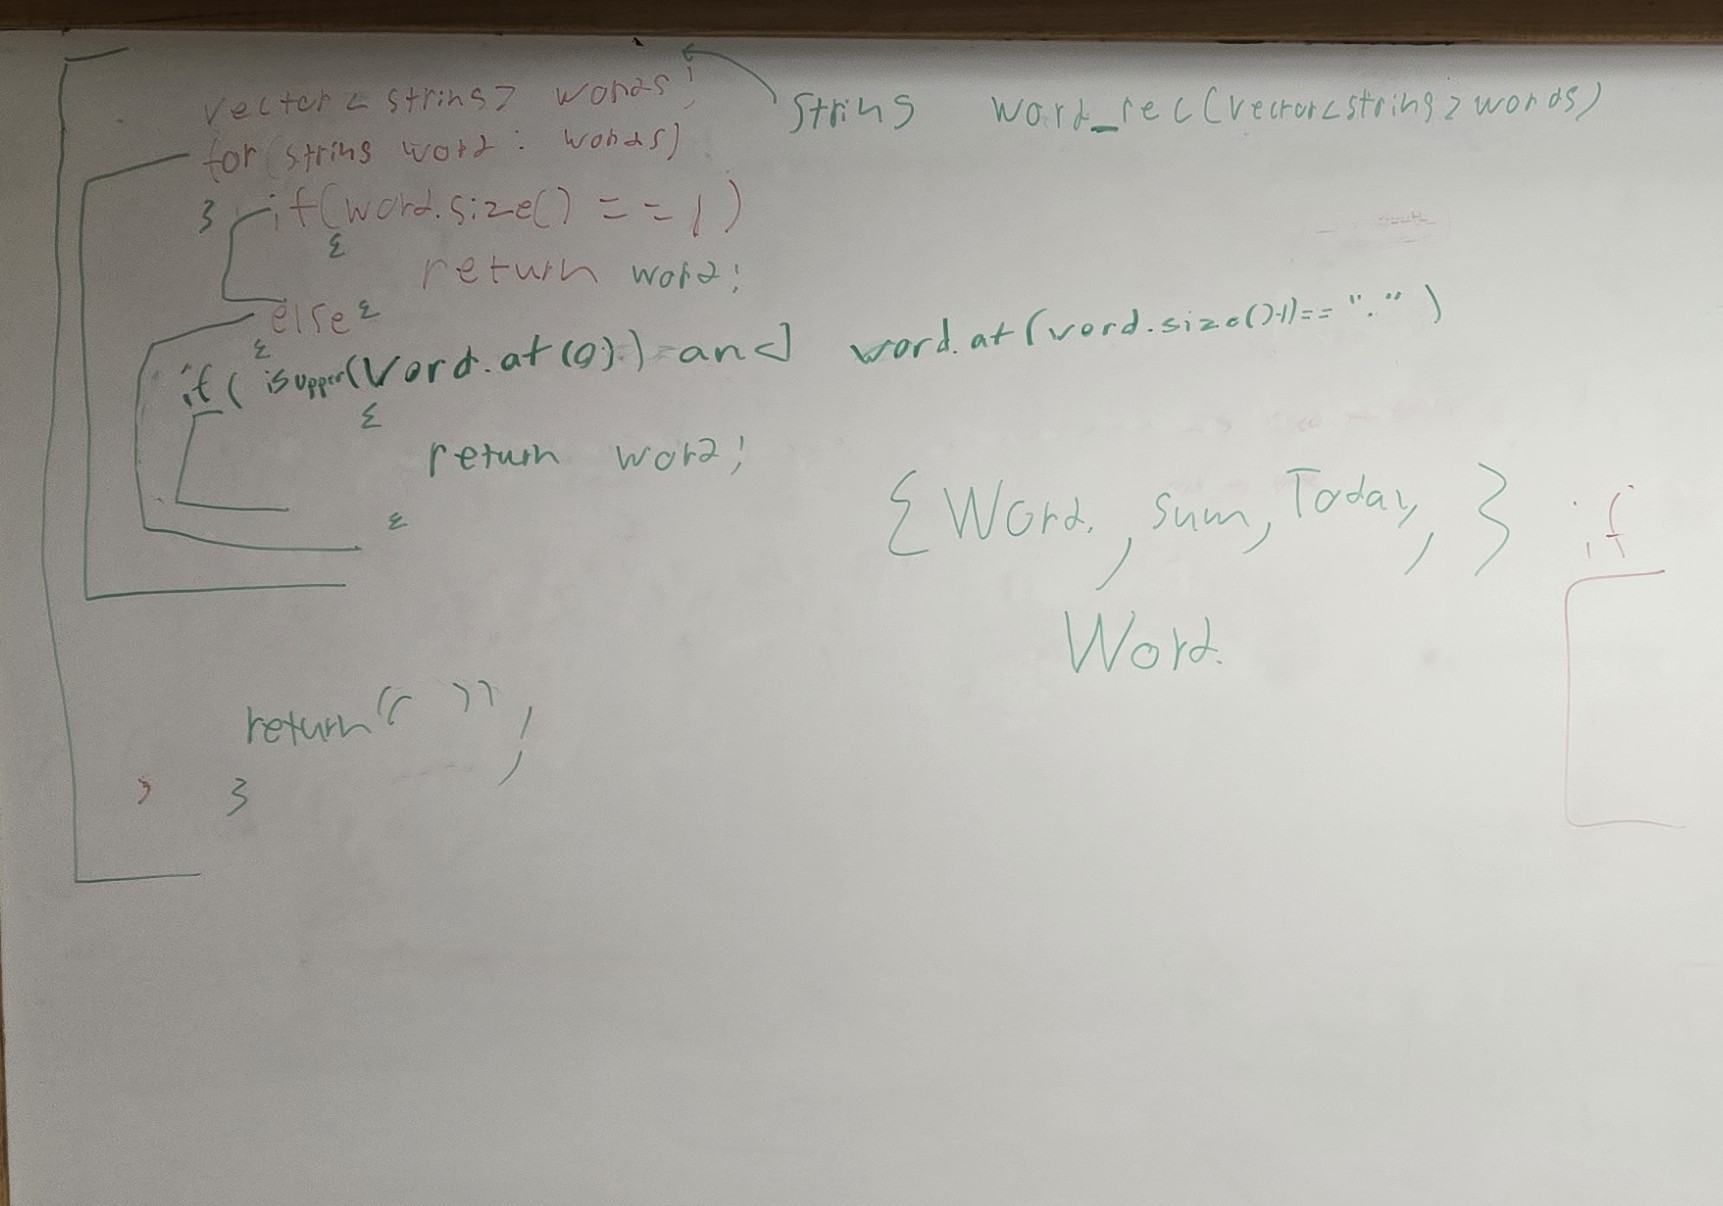 vector < string> words;
string word_rec(vector<string>words)
for(string word : words)
if(word.size() == 1)
{
return word;
else {
{
if( isupper(Word.at(0)) and word.at(word.size()-1)== "." )
{
return word;
{Word. , sum, Today, } if
Word.
return " " ;
}